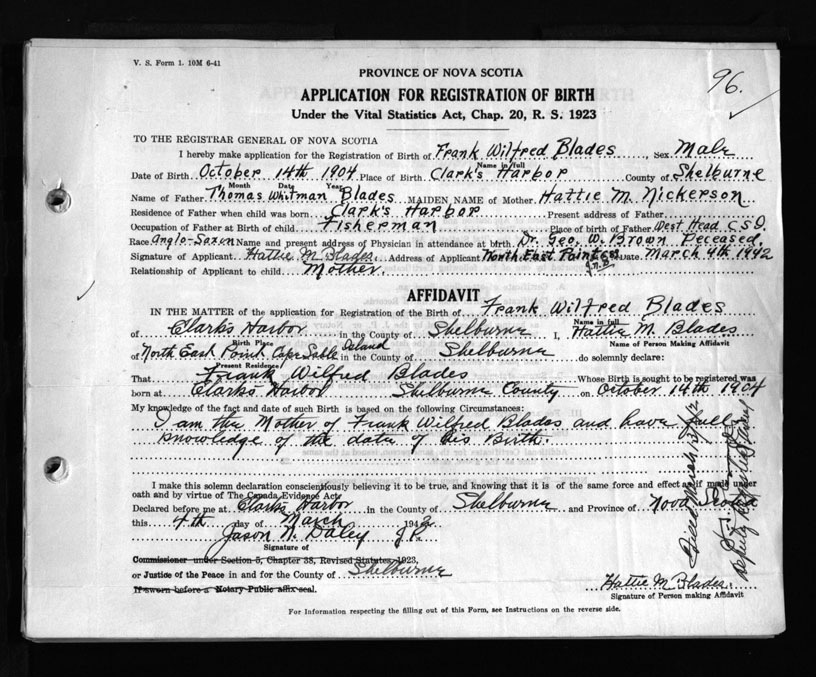 V. S. Form 1. 10M 6-41
96.
PROVINCE OF NOVA SCOTIA
APPLICATION FOR REGISTRATION OF BIRTH
Under the Vital Statistics Act, Chap. 20, R. S. 1923
TO THE REGISTRAR GENERAL OF NOVA SCOTIA
I hereby make application for the Registration of Birth of Frank Wilfred Blades, Sex Male
Name in full
Date of Birth October 14th 1904 Place of Birth Clark's Harbor County of Shelburne
Month Date Year
Name of Father Thomas Whitman Blades MAIDEN NAME of Mother Hattie M. Nickerson
Residence of Father when child was born Clark's Harbor Present address of Father
Occupation of Father at Birth of child Fisherman Place of birth of Father West Head C S I.
Race Anglo-Saxon Name and present address of Physician in attendance at birth Dr. Geo. W. Brown Deceased.
Signature of Applicant Hattie M Blades Address of Applicant North East Point CSI Date March 4th 1942
Relationship of Applicant to child Mother.
AFFIDAVIT
IN THE MATTER of the application for Registration of the Birth of Frank Wilfred Blades
Name in full
of Clarks Harbor in the County of Shelburne I, Hattie M. Blades
Birth Place Name of Person Making Affidavit
of North East Point Cape Sable Island in the County of Shelburne do solemnly declare:
Present Residence
That Frank Wilfred Blades Whose Birth is sought to be registered was
born at Clarks Harbor Shelburne County on October 14th 1904
My knowledge of the fact and date of such Birth is based on the following Circumstances:
I am the Mother of Frank Wilfred Blades and have full
knowledge of the date of his Birth.
I make this solemn declaration conscientiously believing it to be true, and knowing that it is of the same force and effect as if made under
oath and by virtue of The Canada Evidence Act.
Declared before me at Clarks Harbor in the County of Shelburne and Province of Nova Scotia
this 4th day of March 1942
Jason N. Daley J.P.
Signature of
Commissioner under Section 5, Chapter 38, Revised Statutes, 1923,
or Justice of the Peace in and for the County of Shelburne
If sworn before a Notary Public affix seal.
Hattie M Blades
Signature of Person making Affidavit
For Information respecting the filling out of this Form, see Instructions on the reverse side.